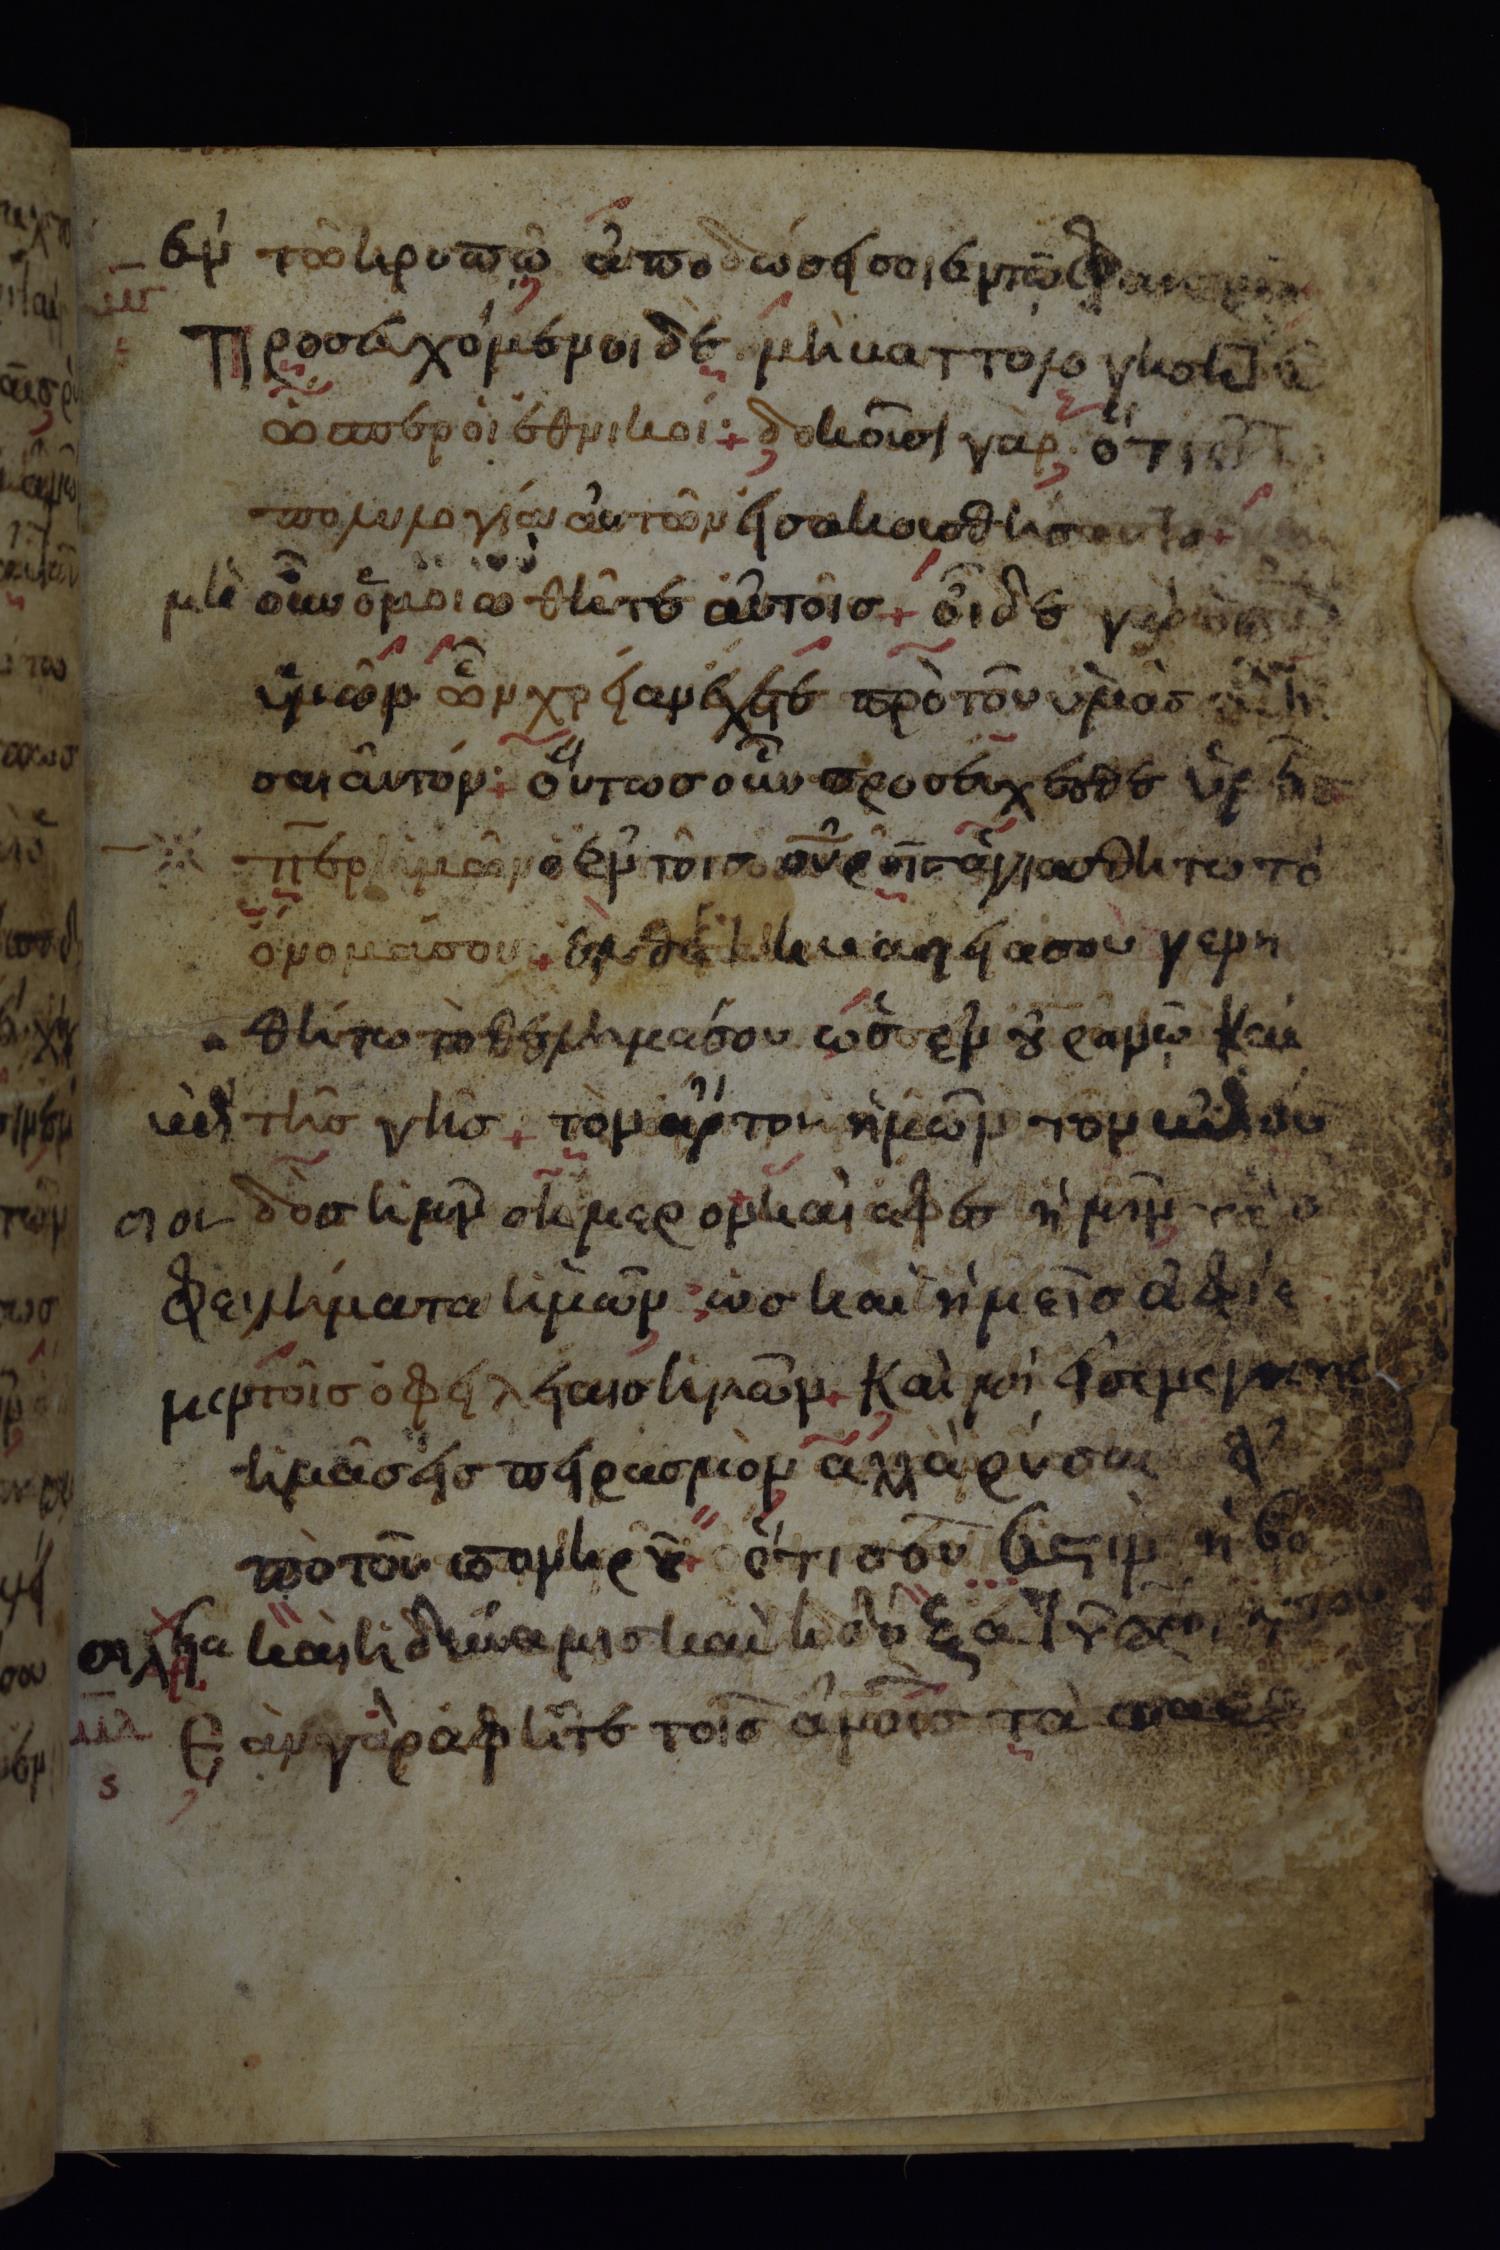 ἐν τῶ κρυπτῶ ἀποδώσει σοι ἐν τῶ φανερῶ
Προσεχόμενοι δὲ μὴ βαττολογήσηται
ὥσπερ οἱ ἐθνικοί + δοκοῦσι γὰρ ὅτι ἐν τῆ
πολυλογία αὐτῶν εἰσακουσθήσονται +
μὴ οὖν ὁμοιωθῆτε αὐτοῖς + οἶδε γὰρ ὁ
ὑμῶν ὧν χρείαν ἔχετε πρὸ τοῦ ὑμᾶς αἰτῆ
σαι αὐτόν + οὕτως οὖν προσεύχεσθε ὑμεῖς
περ ἡμῶν ὁ ἐν τοῖς οὐνοῖς ἁγιασθήτω τὸ
ὄνομά σου + ἐλθέτω ἡ βασιλεία σου γενη
θήτω τὸ θέλημά σου ὡς ἐν οὐρανῶ καὶ
ἐπὶ τῆς γῆς + τὸν ἄρτον ἡμῶν τὸν ἐπιού
σιον δὸς ἡμῖν σήμερον καὶ ἄφες ἡμῖν τὰ ὀ
φειλήματα ἡμῶν ὡς καὶ ἡμεῖς ἀφίε
μεν τοῖς ὀφειλέταις ἡμῶν + καὶ μὴ εἰσενέγκης
ἡμᾶς εἰς πειρασμὸν ἀλλὰ ῥύσαι ἡμᾶς ἀ
πὸ τοῦ πονηροῦ + ὅτι σοῦ ἐστιν ἡ βα
σιλεία καὶ ἡ δύναμις καὶ ἡ δόξα
Ἐὰν γὰρ ἀφῆτε τοῖς ἀνοις τὰ